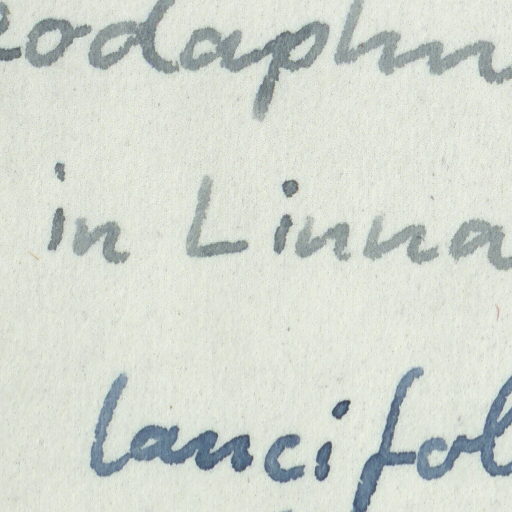 eodaphn
in Linna
lancifol